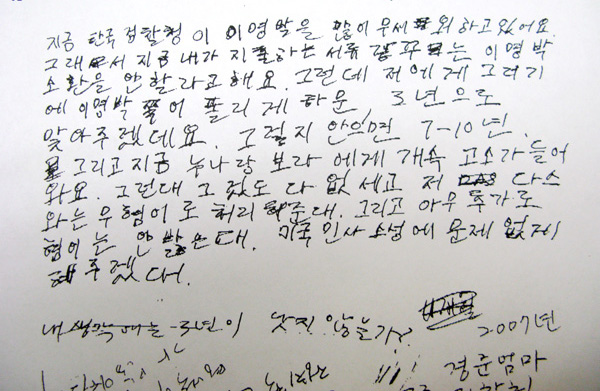 지금 한국 검찰청이 이명박을 많이 무세워하고 있어요.
그래서 지금 내가 지출하는 서류 가꾸는 이명박
소환을 안 할라고 해요. 그런데 저에게 그러기
에 이명박 풀리게 하문 3년으로
맞아주겠데요. 그렇지 안으면 7-10년.
그리고 지금 누나랑 보라에게 개속 고소가 들어
와요. 그런대 그것도 다 없세고 저 다스
와는 무협이로 처리해준대. 그리고 아무 추가로
협이는 안 받는대. 미국 민사 소성에 문제 없게
해주겠대.
내 생각에는 3년이 낫지 않을가?
2007년
경준엄마